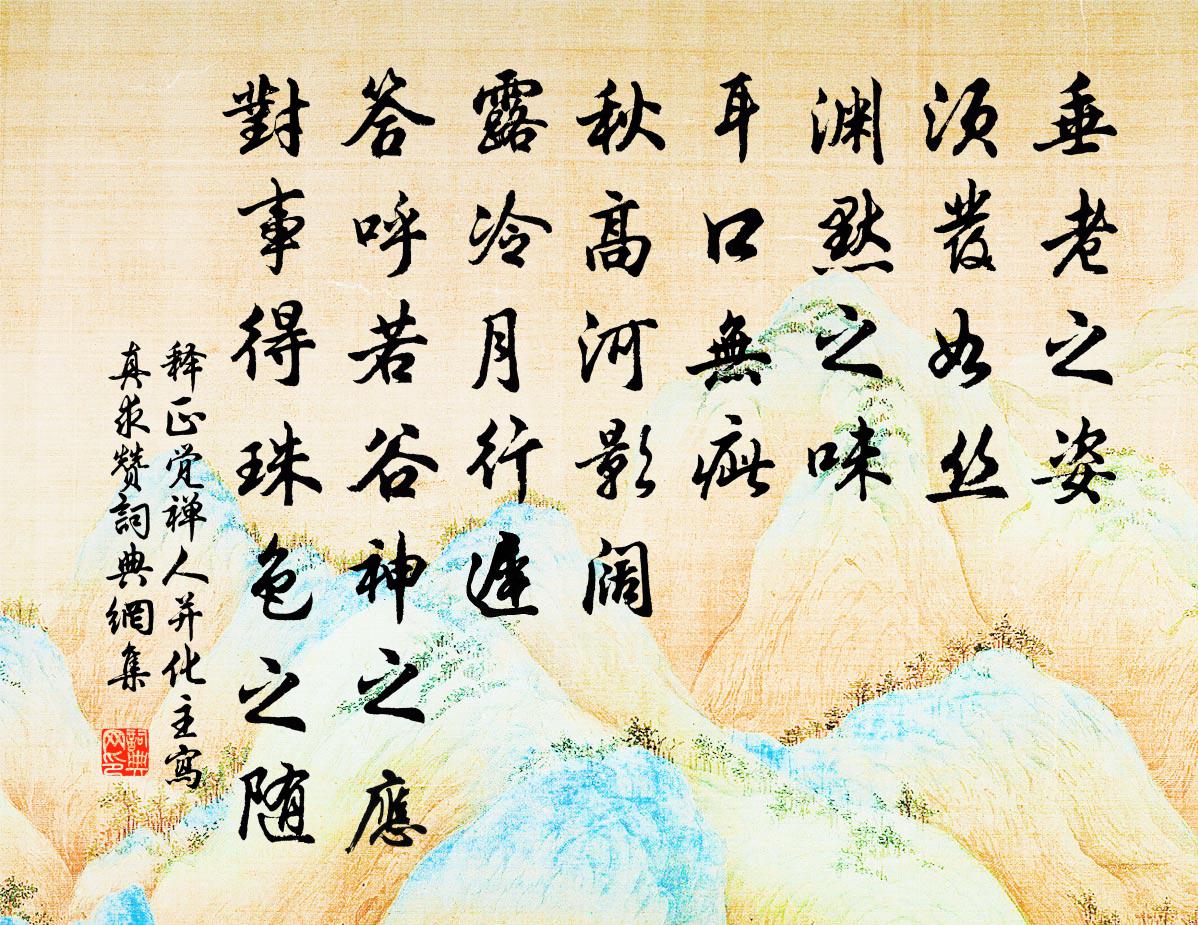 垂老之姿
须發如丝
渊默之味
耳口無疵
秋高河影阔
露冷月行遲
答呼若谷神之應
對事得珠色之随
释正觉禅人并化主寫
真求赞詞典網集